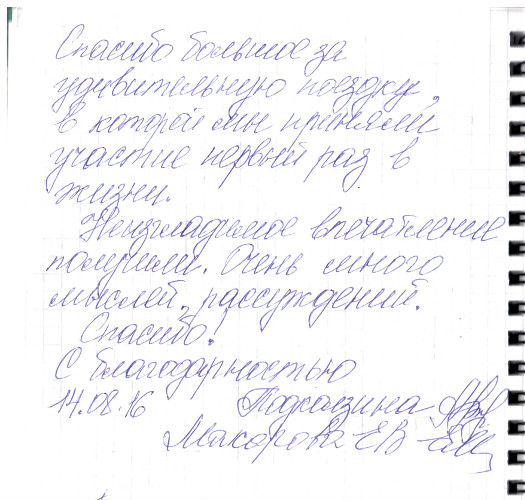 Спасибо большое за
удивительную поездку,
в которой мы приняли
участие первый раз в
жизни.
Неизгладимое впечатление
получили. Очень много
мыслей, рассуждений.
Спасибо.
С благодарностью
14.08.16
Макарова ЕВ